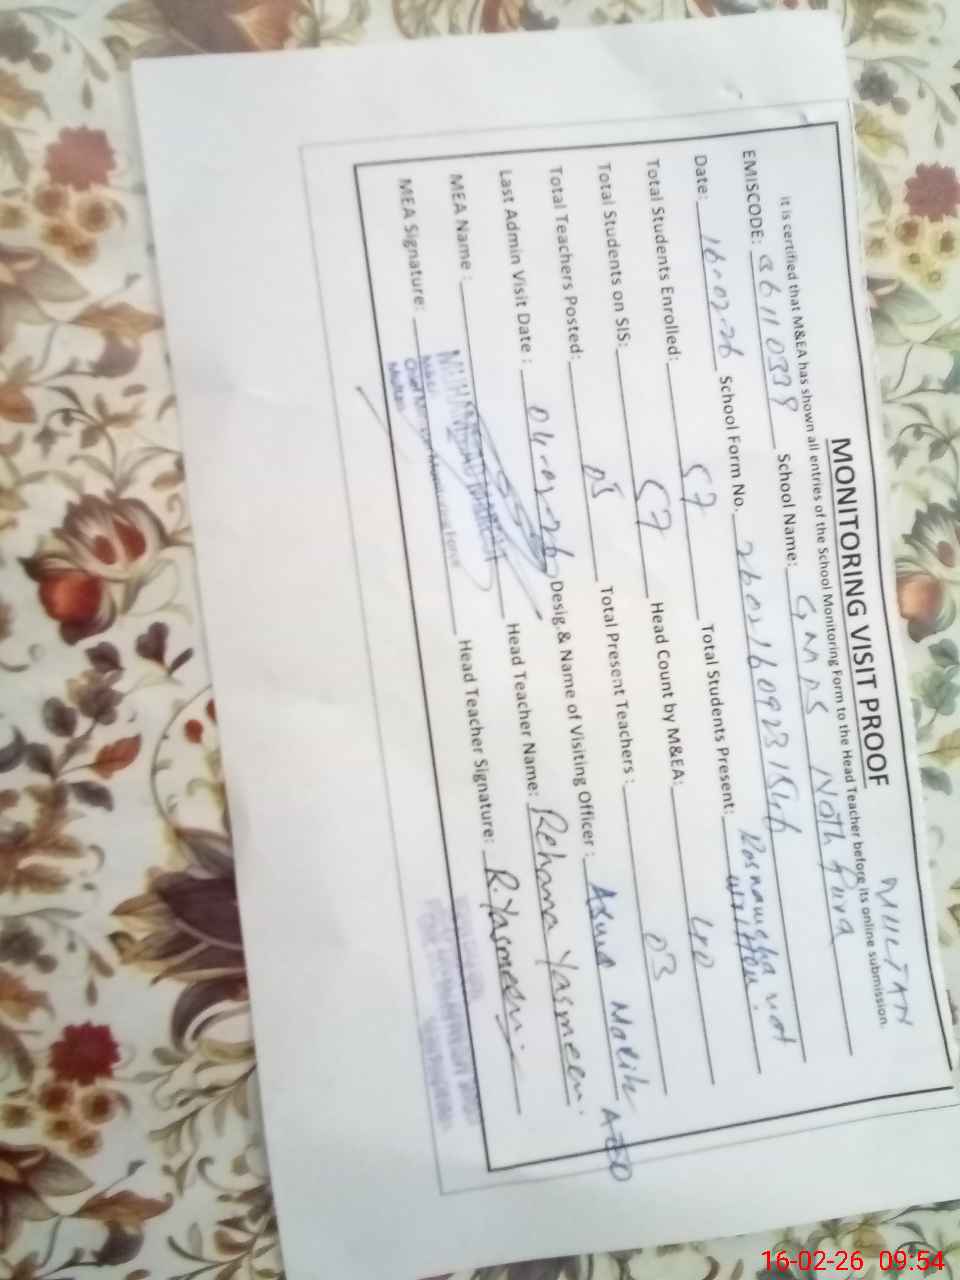 MULTAN
MONITORING VISIT PROOF
It is certified that M&EA has shown all entries of the School Monitoring Form to the Head Teacher before its online submission.
EMISCODE: 36110339 School Name: GMPS Nath Pura
Date: 16-02-26 School Form No. 26021609231546
Total Students Enrolled: 57 Total Students Present: Rosnamcha not written.
Total Students on SIS: 57 Head Count by M&EA: 40
Total Teachers Posted: 03 Total Present Teachers: 03
Last Admin Visit Date: 04-02-26 Desig.& Name of Visiting Officer: Asma Malik AEO
MEA Name: MUHAMMAD Head Teacher Name: Rehana Yasmeen.
MEA Signature: Head Teacher Signature: R.Yasmeen
Monitoring Force
Multan
16-02-26 09:54